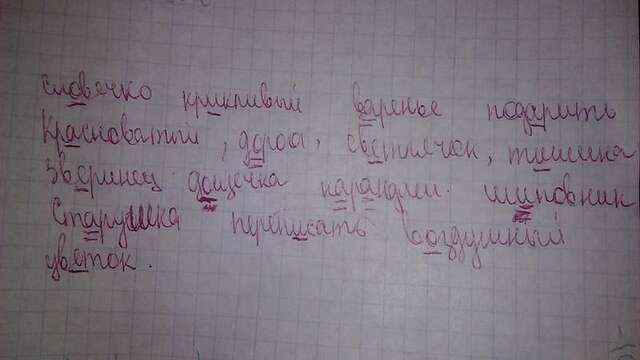 словечко крикливый варенье подарить
красноватый, дорога, светлячок, тишина
зверинец дощечка карандаш шиповник
старушка переписать воздушный
цветок.